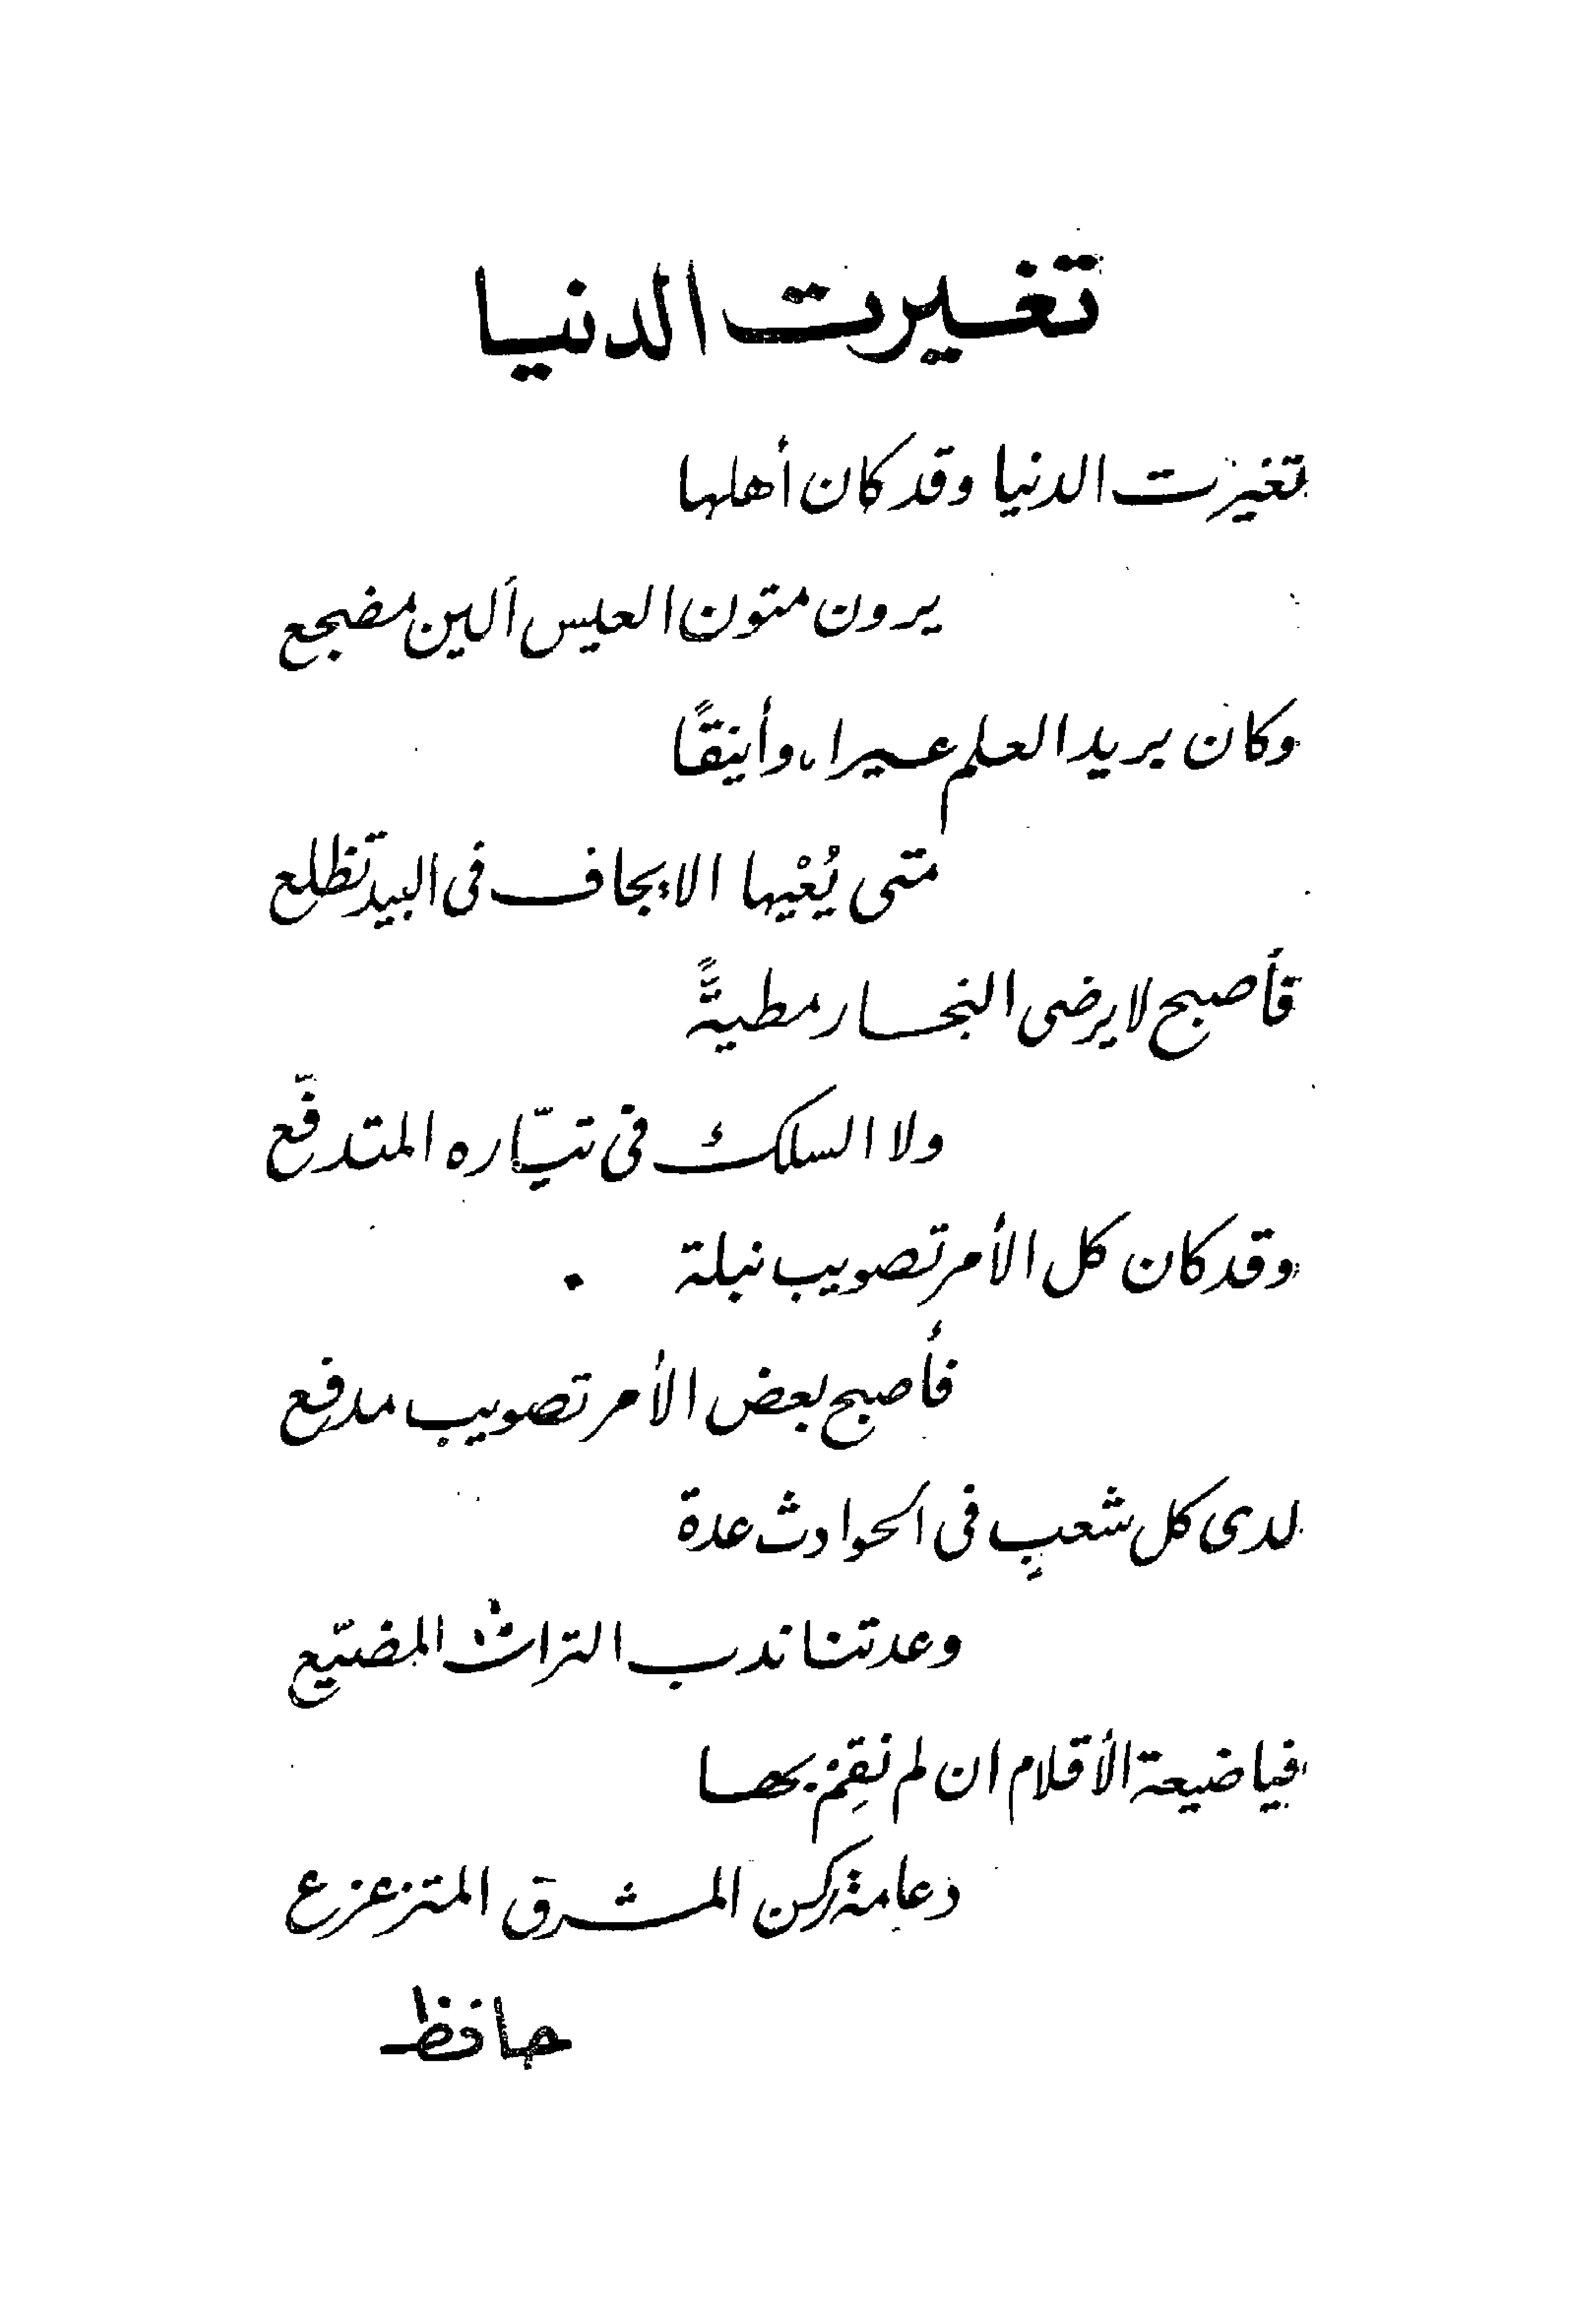 تغيرت الدنيا
تغيرت الدنيا وقد كان أهلها
يرون متون العيس ألين مضجع
وكان بريد العلم عيرا، وأينقًا
متى يُعْيها الايجاف فى البيد تظلع
فأصبح لا يرضى البخار مطيةً
ولا السلك فى تيّاره المتدفّع
وقد كان كل الأمر تصويب نبلة
فأصبح بعض الأمر تصويب مدفع
لدى كل شعبٍ فى الحوادث عدة
وعدتنا ندب التراث المضيّع
فيا ضيعة الأقلام ان لم نقِمْ بها
دعامة ركن المشرق المتزعزع
حافظ